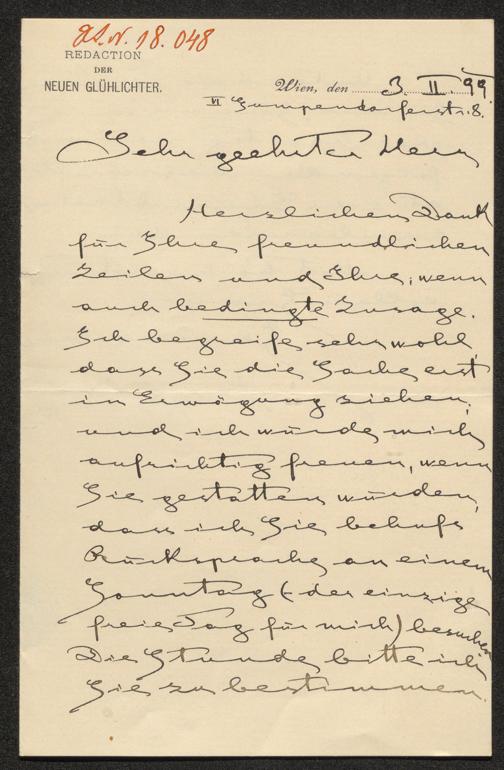 I.N. 18.048
REDACTION
DER
NEUEN GLÜHLICHTER.
Wien, den 3. II. 99.
VI Gumpendorferstr. 8.
Sehr geehrter Herr
Herzlichen Dank
für Ihre freundlichen
Zeilen und Ihre, wenn
auch bedingte Zusage.
Ich begreife sehr wohl,
dass Sie die Sache erst
in Erwägung ziehen,
und ich würde mich
aufrichtig freuen, wenn
Sie gestatten würden,
dass ich Sie behufs
Rücksprache an einem
Sonntag (- der einzige
freie Tag für mich) besuche.
Die Stunde bitte ich
Sie zu bestimmen.